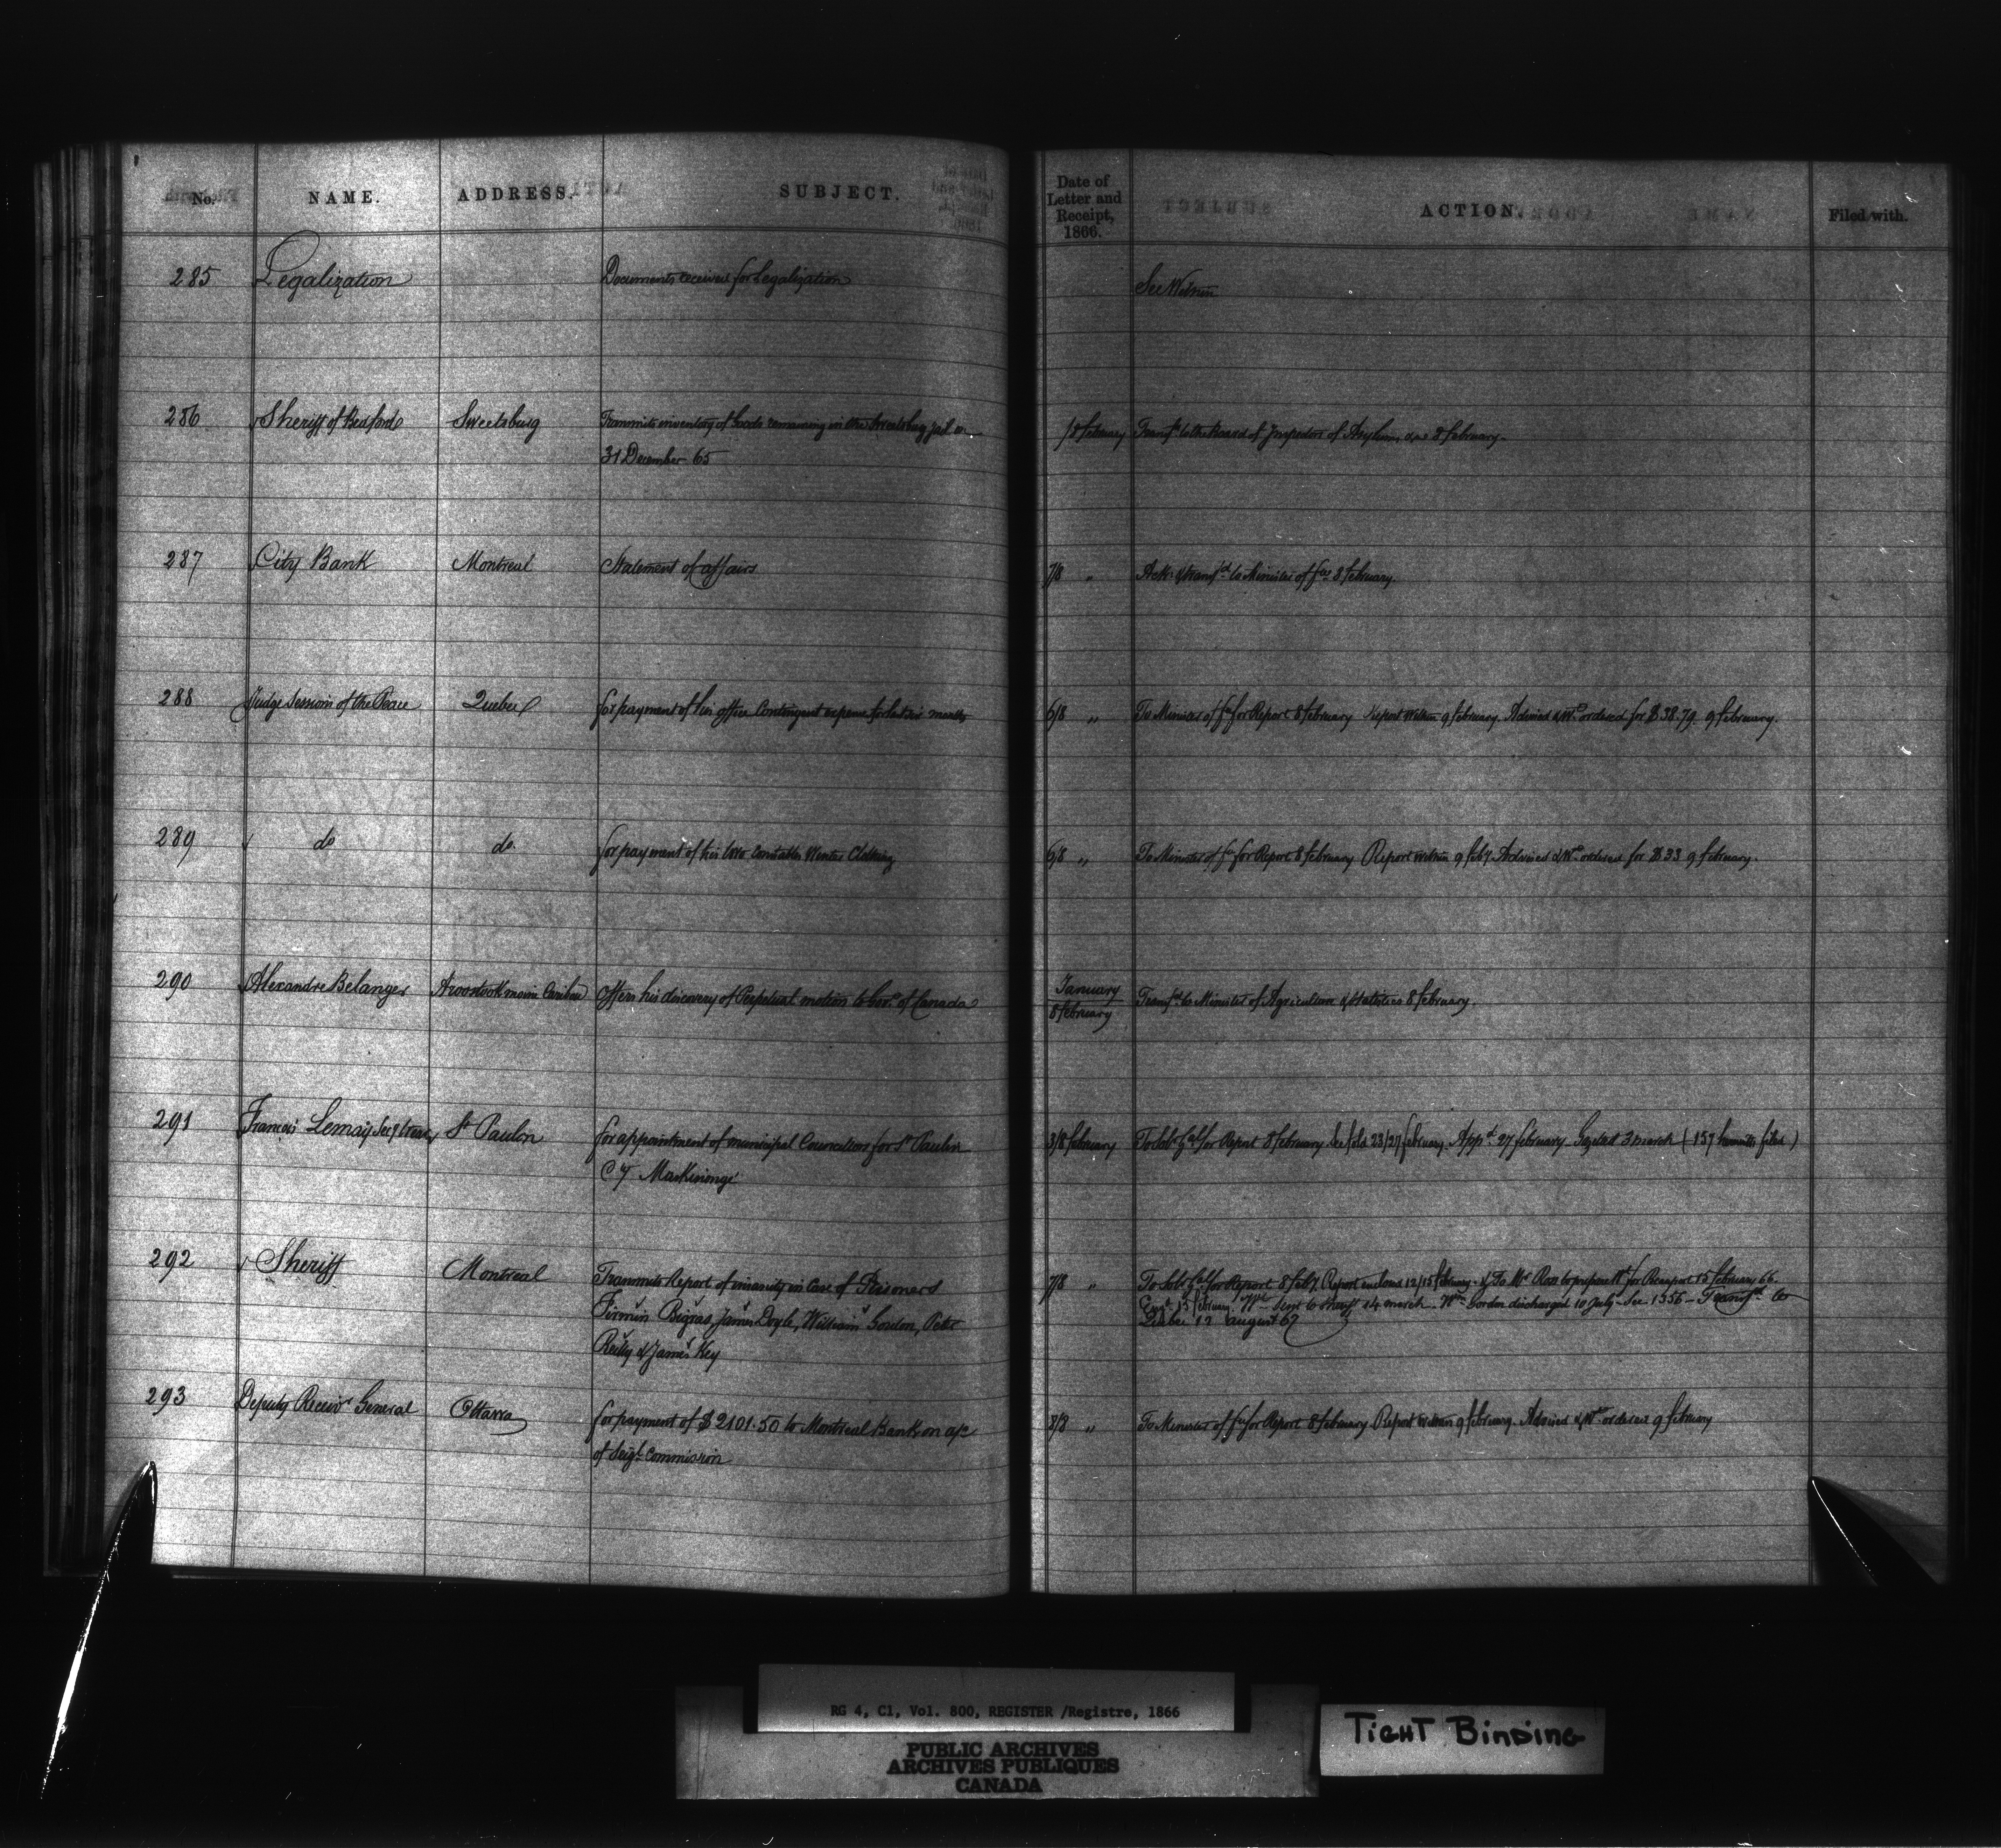 No. NAME. ADDRESS. SUBJECT. Date of Letter and Receipt, 1866. ACTION. Filed with.
285 Legalization Documents received for Legalization See Within
286 Sheriff of Bedford Sweetsburg Transmits inventory of Goods remaining in the Sweetsburg jail on 8 february Transfd to the Board of Inspectors of Asylums &c 8 february.
31 December 65
287 City Bank Montreal Statement of affairs 7/8 " Ack. & transfd to Minister of fce 8 february.
288 Judge Sessions of the Peace Quebec for payment of his office Contingent expense for last six months 6/8 " To Minister of fce for Report 8 february Report within 9 february. Advised & Wt ordered for $38.79 9 february.
289 do do. for payment of his two Constables Winter Clothing 6/8 " To Minister of fce for Report 8 february Report within 9 feby. Advised & Wt ordered for $33 9 february.
290 Alexandre Belanger Aroostook maine Caribou Offers his discovery of Perpetual motion to Govt of Canada January
8 february Transfd to Minister of Agriculture & Statistics 8 february.
291 Francois Lemay Secy treasr St Paulin for appointment of municipal Councillors for St Paulin 3/8 february To Solr Gal for Report 8 february. 23/27 february. Appd 27 february. Gazeted 3 march (157 filed)
Cy Maskinongé
292 Sheriff Montreal Transmits Report of insanity in Case of Prisoners 7/8 " To Solr Gal for Report 8 feby. Report enclosed 12/15 february. & To Mr Ross to prepare Wt for Beauport 15 february 66.
Firmin Bigras, James Doyle, William Gordon, Peter 15 february. Wt Sent to Sheriff 14 march. Wm Gordon discharged 10 July - See 1356 - Transfd to
Reilly & James Key Quebec 12 august 67
293 Deputy Receivr General Ottawa for payment of $2101.50 to Montreal Bank on a/c 8/8 " To Minister of fce for Report 8 february Report within 9 february. Advised & Wt ordered 9 february
of Seigl Commission
RG 4, C1, Vol. 800, REGISTER /Registre, 1866
PUBLIC ARCHIVES
ARCHIVES PUBLIQUES
CANADA
TIGHT BINDING